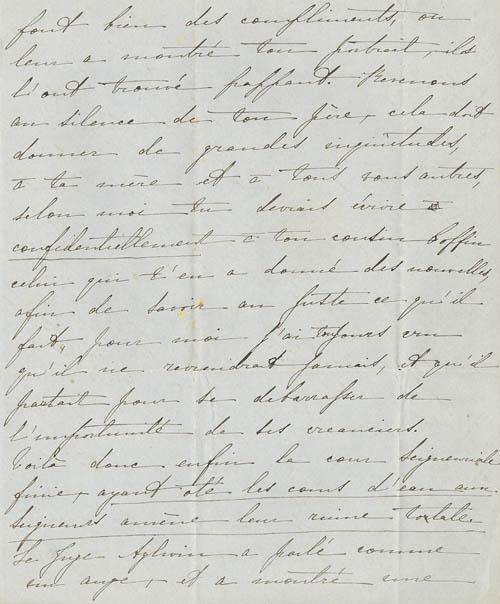 font bien des compliments, on
leur a montré ton portrait, ils
l'ont trouvé frappant. Revenons
au silence de ton père, cela doit
donner de grandes inquiétudes,
à ta mère et a tous vous autres,
selon moi tu devrais écrire
confidentiellement à ton cousin Coffin
celui qui t'en a donné des nouvelles,
afin de savoir au juste ce qu'il
fait, pour moi j'ai toujours cru
qu'il ne reviendrait jamais, et qu'il
partait pour se debarrasser de
l'importunité de ses creanciers.
Voilà donc enfin la cour Seigneuriale
finie, ayant oté les cours d'eau aux
seigneurs amène leur ruine totale.
Le Juge Aylwin a parlé comme
un ange, et a montré une